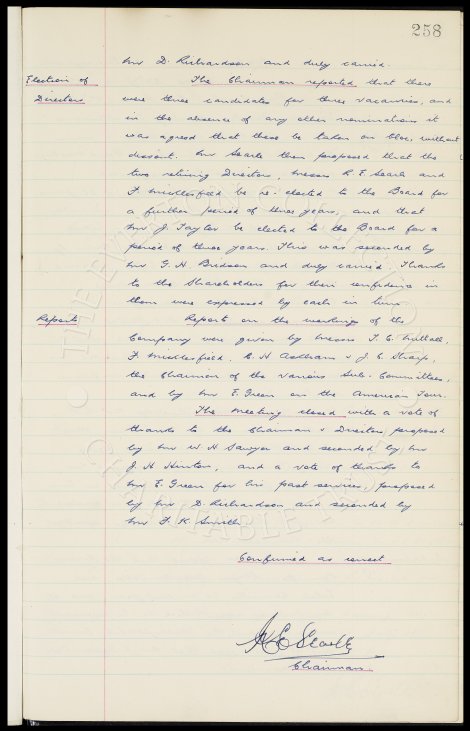 258
Mr D. Richardson and duly carried.
Election of Directors
The Chairman reported that there
were three candidates for three vacancies, and
in the absence of any other nominations it
was agreed that these be taken en bloc, without
dissent. Mr Searle then proposed that the
two retiring Directors, Messrs R. E. Searle and
F. Micklesfield be re-elected to the Board for
a further period of three years, and that
Mr J. Taylor be elected to the Board for a
period of three years. This was seconded by
Mr G. H. Bridson and duly carried. Thanks
to the Shareholders for their confidence in
them were expressed by each in turn.
Reports
Reports on the workings of the
Company were given by Messrs T. C. Nuttall,
F. Micklesfield, C. H. & J. E. Sharp,
the Chairmen of the various Sub-Committees,
and by Mr E. Green on the American Tour.
The meeting closed with a vote of
thanks to the Chairman & Directors, proposed
by Mr W. H. Sawyer and seconded by Mr
J. H. Hinton, and a vote of thanks to
Mr E. Green for his past services, proposed
by Mr D. Richardson and seconded by
Mr F. K. Smith
Confirmed as correct
Chairman
THE EVERTON COLLECTION
CHARITABLE TRUST